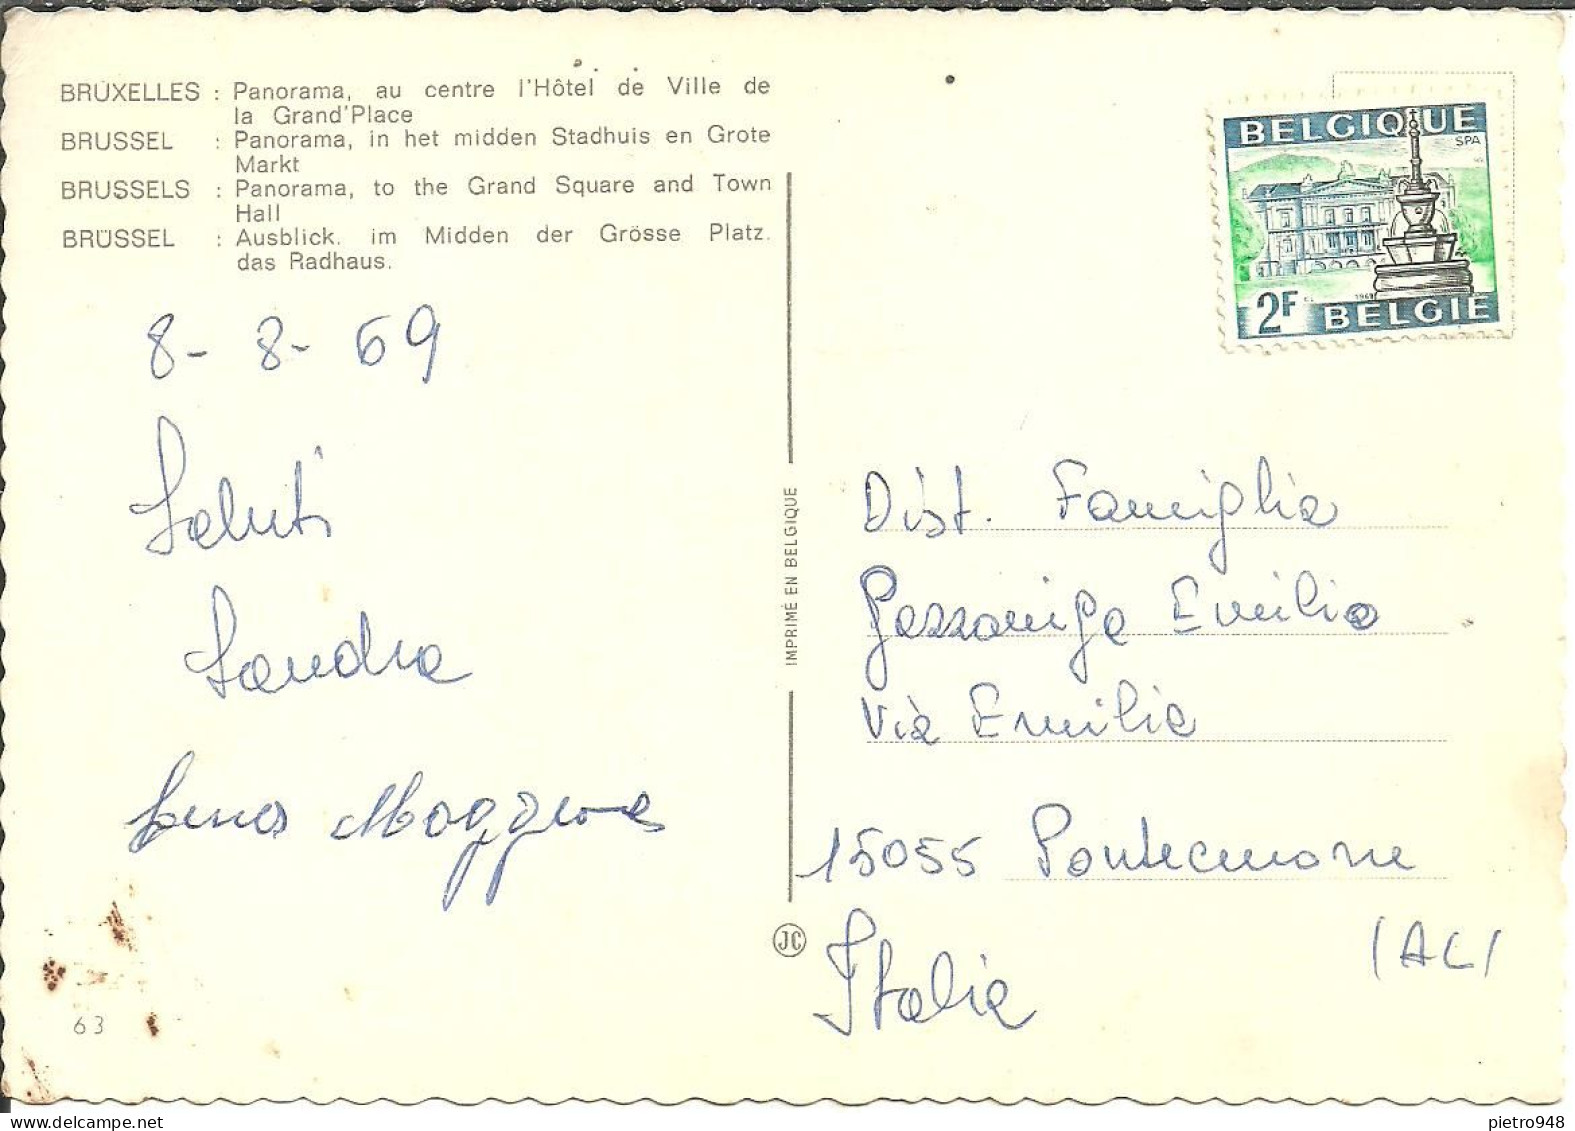 BRUXELLES : Panorama, au centre l'Hôtel de Ville de
la Grand'Place
BRUSSEL : Panorama, in het midden Stadhuis en Grote
Markt
BRUSSELS : Panorama, to the Grand Square and Town
Hall
BRÜSSEL : Ausblick. im Midden der Grösse Platz.
das Radhaus.
8- 8- 69
Saluti
Sandra
63
IMPRIMÉ EN BELGIQUE
JC
BELGIQUE
SPA
2F
1969
BELGIE
Dist. Famiglia
Gazzaniga Emilio
Via Emilia
15055 Pontecurone
(AL)
Italia
pietro948